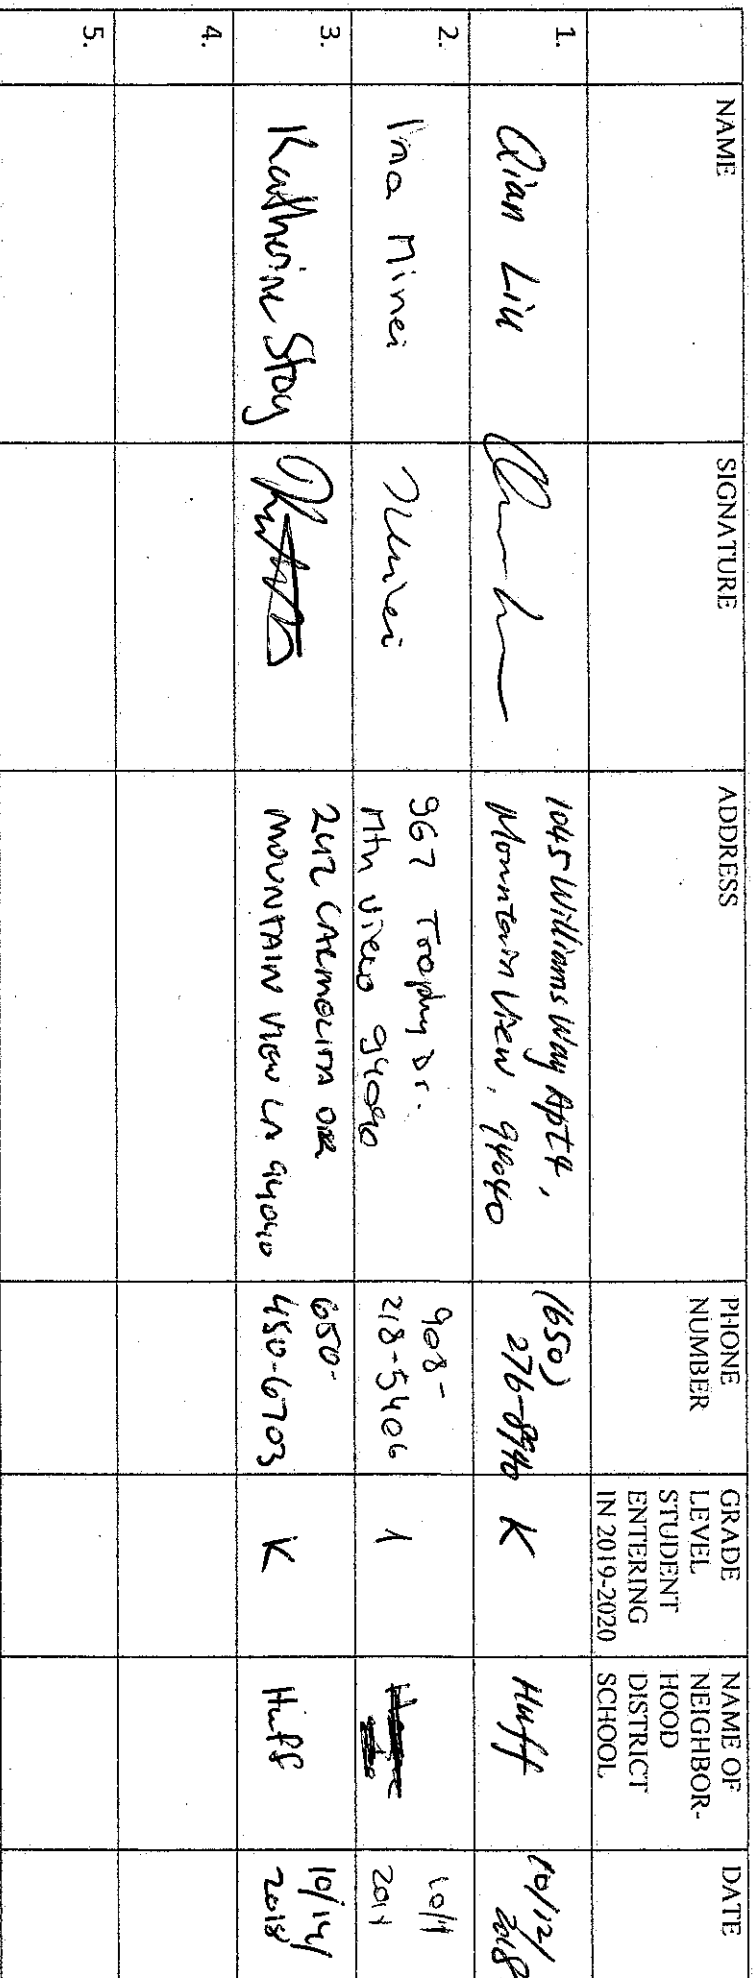 NAME
SIGNATURE
ADDRESS
PHONE
NUMBER
GRADE
LEVEL
STUDENT
ENTERING
IN 2019-2020
NAME OF
NEIGHBOR-
HOOD
DISTRICT
SCHOOL
DATE
1.
Qian Liu
1045 Williams Way Apt 4,
Mountain View, 94040
(650)
276-8940
K
Huff
10/12/
2018
2.
Ina Minei
967 Trophy Dr.
Mtn View 94040
908-
218-5406
1
3.
Katherine Stoy
242 CARMELITA
MOUNTAIN VIEW CA 94040
650-
450-6703
K
Huff
10/14/
2018
4.
5.